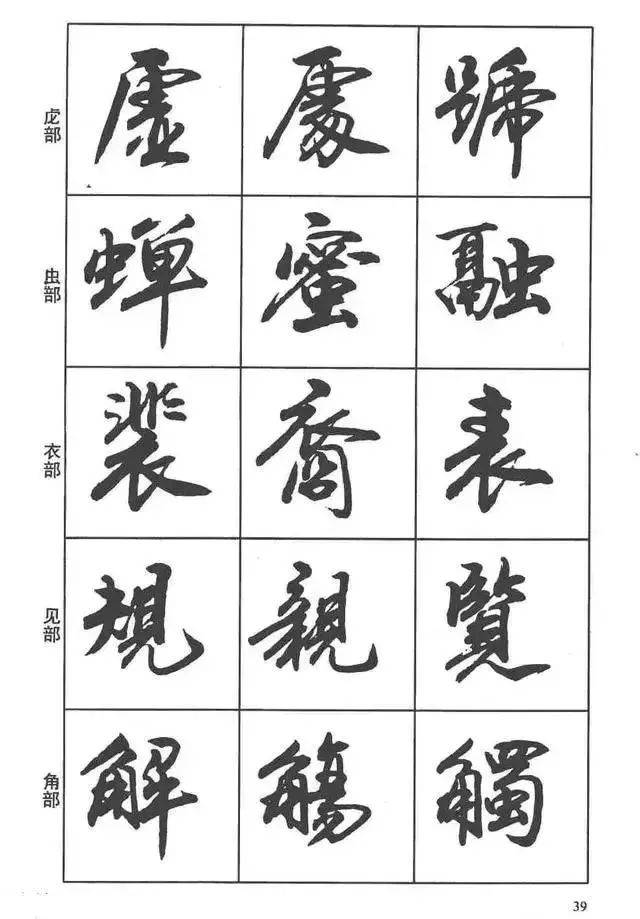 虍部 虚 處 號
虫部 蝉 蜜 融
衣部 裴 裔 表
见部 規 親 覽
角部 解 觴 觸
39